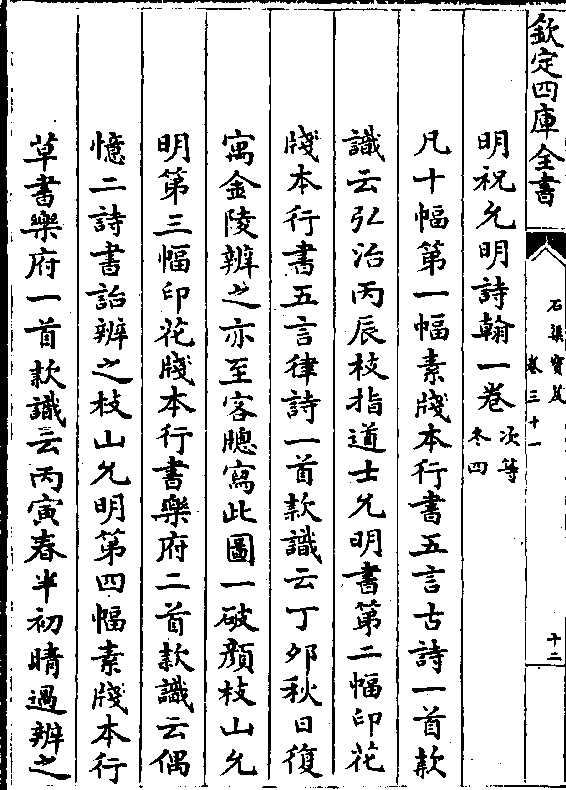 欽定四庫全書
石渠寶笈
卷三十一
十二
明祝允明詩翰一卷次等冬四
凡十幅第一幅素牋本行書五言古詩一首款
識云弘治丙辰枝指道士允明書第二幅印花
牋本行書五言律詩一首款識云丁夘秋日復
寓金陵辨之亦至客牕寫此圖一破顔枝山允
明第三幅印花牋本行書樂府二首款識云偶
憶二詩書詒辨之枝山允明第四幅素牋本行
草書樂府一首款識云丙寅春半初晴過辨之